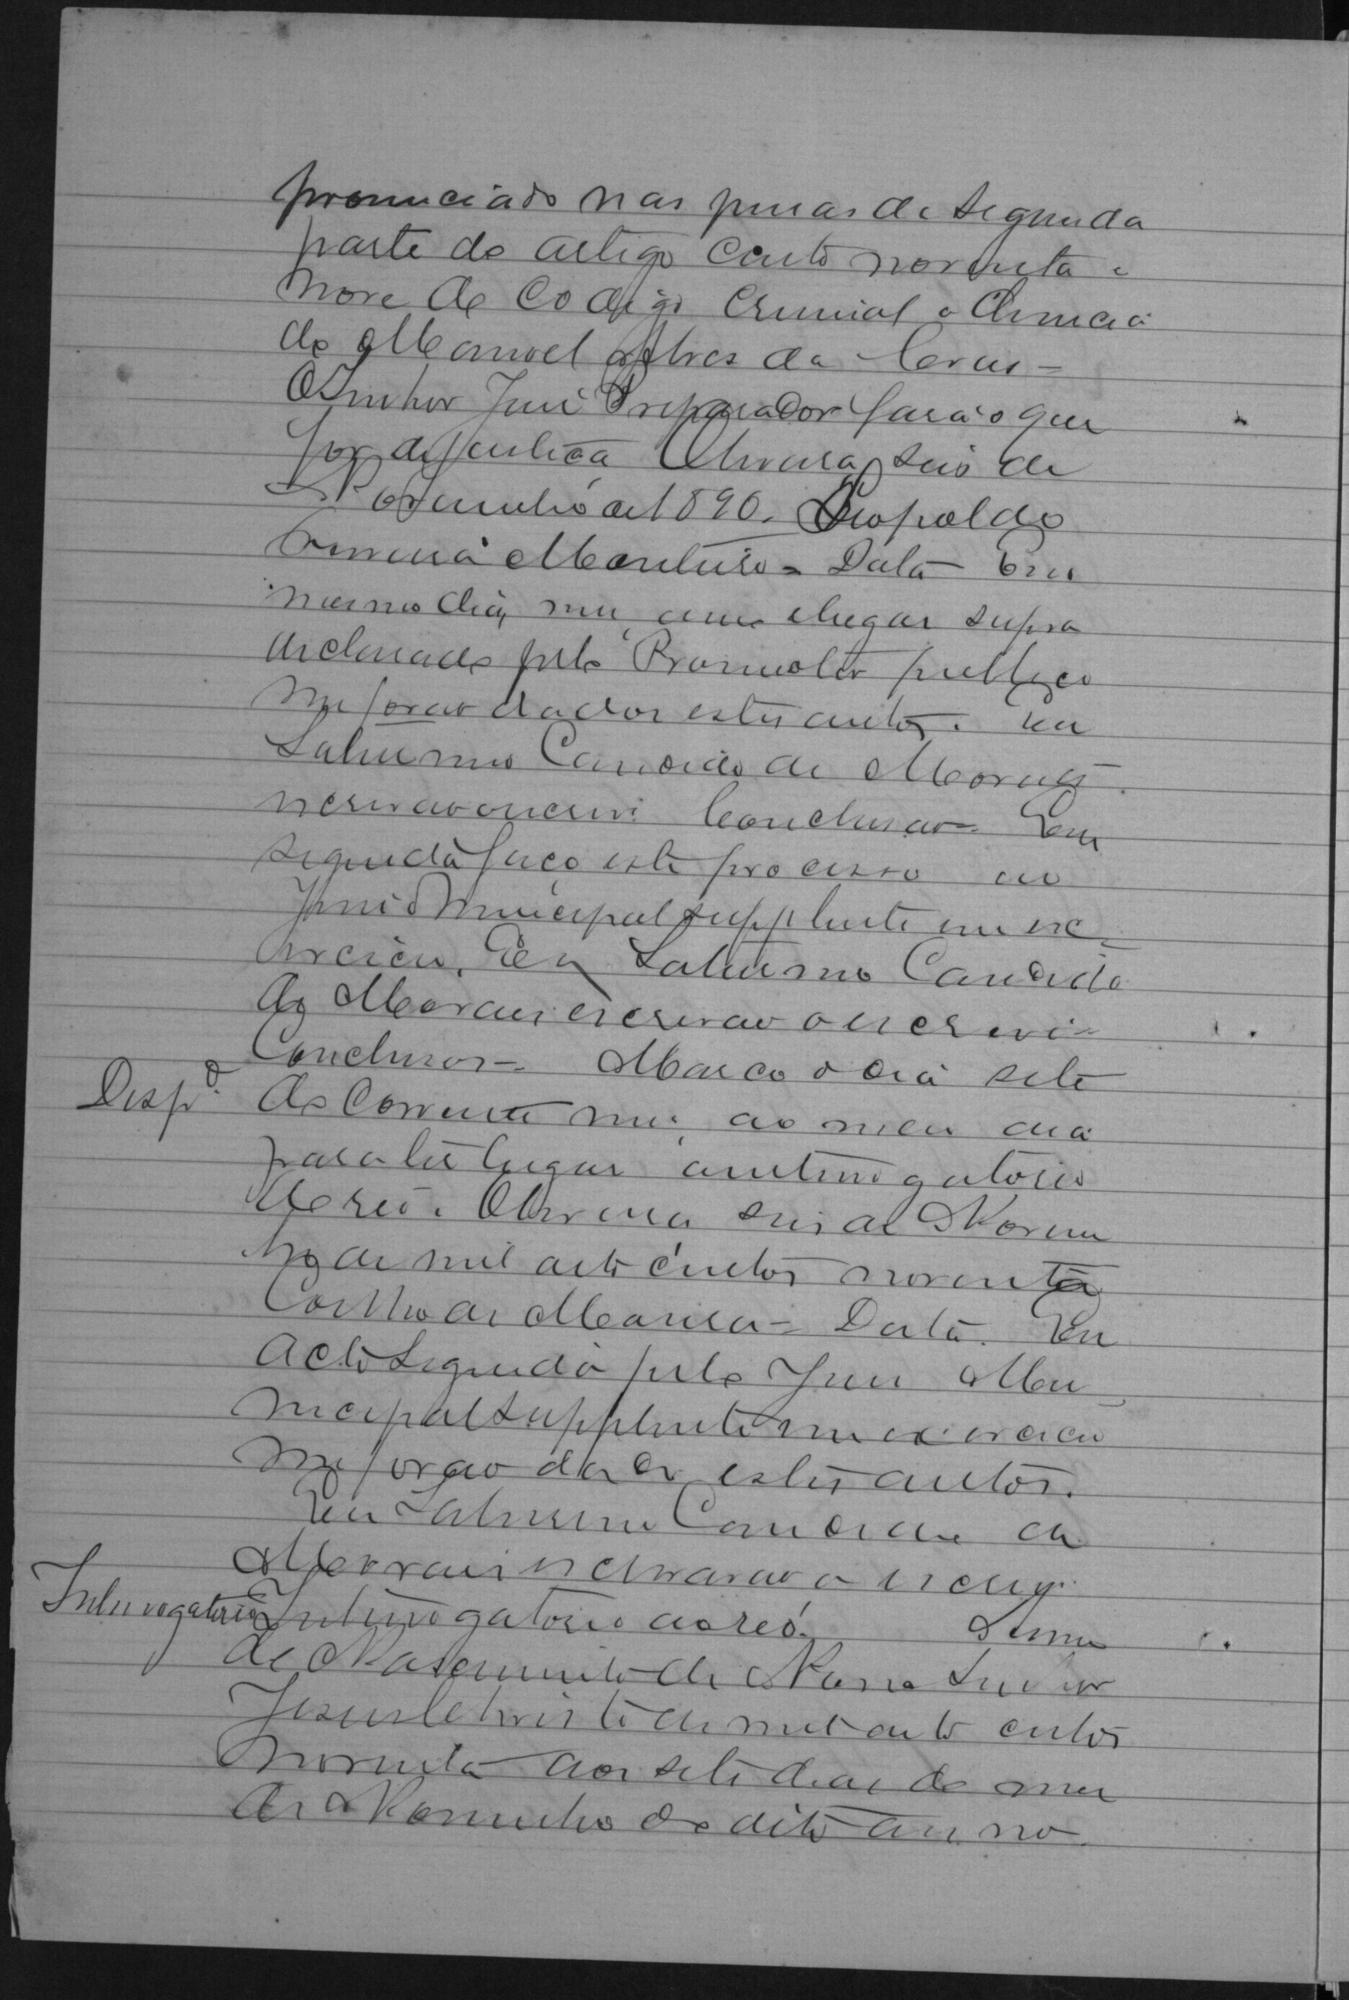 pronunciado nas penas da segunda
parte do artigo cento noventa e
nove do Codigo Criminal o denuncia
do Manoel Alves da Cruz =
O Senhor Juiz Preparador fará o que
for de justiça Oliveira, seis de
Novembro de 1890. Leopoldo
Monteiro = Data = Em o
mesmo dia, mez, anno e lugar supra
declarado pelo Promotor publico
me forão dados estes autos. Eu
Saturnino Candido de Moraes
escrivão o escrevi Conclusão = Em
seguida faço este processo ao
Juiz Municipal supplente em exer-
cicio. Eu Saturnino Candido
de Moraes escrivão o escrevi =
Conclusos = Marco o dia sete
Desp.o do Corrente mez, ao meio dia
para ter lugar o interrogatorio
do reo. Oliveira seis de Novem
bro de mil oito centos noventa
Coelho de Moura = Data. Em
acto seguido pelo Juiz Mu
nicipal supplente em exercicio
me forão dados estes autos.
Eu Saturnino Candido de
Moraes escrivão o escrevi
Interrogatorio Interrogatorio ao reo. Anno
do Nascimento de Nosso Senhor
Jesus Christo de mil oito centos
noventa aos sete dias do mez
de Novembro do dito anno